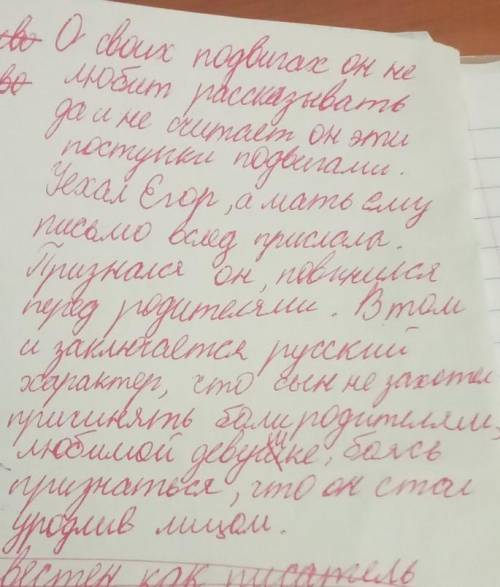 О своих подвигах он не
любит рассказывать
да и не считает он эти
поступки подвигами.
Уехал Егор, а мать ему
письмо вслед прислала.
Признался он, повинился
перед родителями. В том
и заключается русский
характер, что сын не захотел
причинять боли родителям,
любимой девушке, боясь
признаться, что он стал
уродлив лицом.
вестен как писатель